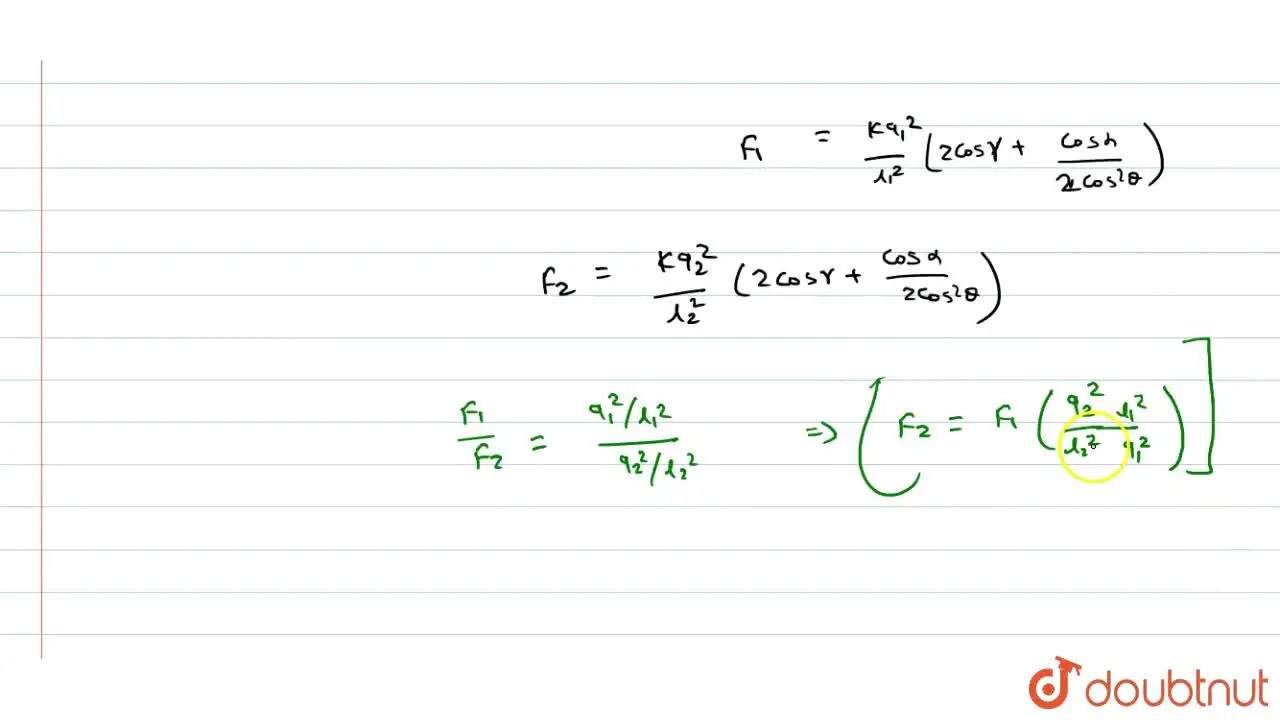 F₁ = kq₁²/l₁² (2cosγ + cosα/2cos²θ)
F₂ = kq₂²/l₂² (2cosγ + cosα/2cos²θ)
F₁/F₂ = (q₁²/l₁²)/(q₂²/l₂²) ⇒ [F₂ = F₁ (q₂² l₁²/l₂² q₁²)]
doubtnut